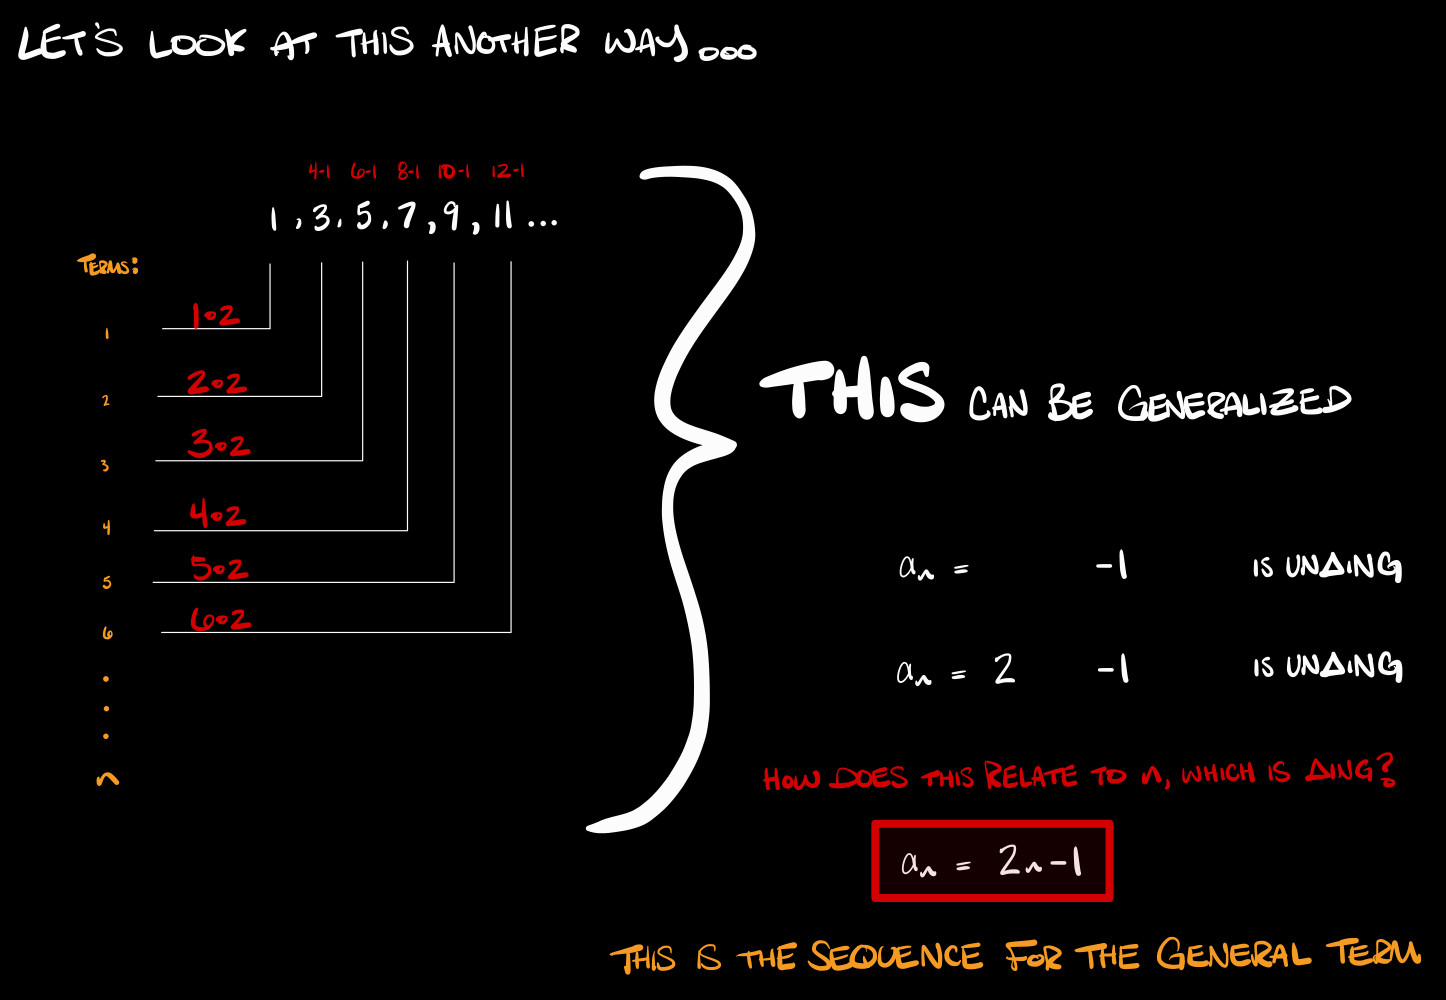 LET'S LOOK AT THIS ANOTHER WAY...
4-1 6-1 8-1 10-1 12-1
1, 3, 5, 7, 9, 11 ...
TERMS:
1 1•2
2 2•2
3 3•2
4 4•2
5 5•2
6 6•2
.
.
.
n
THIS CAN BE GENERALIZED
aₙ = -1 IS UNΔING
aₙ = 2 -1 IS UNΔING
HOW DOES THIS RELATE TO n, WHICH IS ΔING?
aₙ = 2n-1
THIS IS THE SEQUENCE FOR THE GENERAL TERM